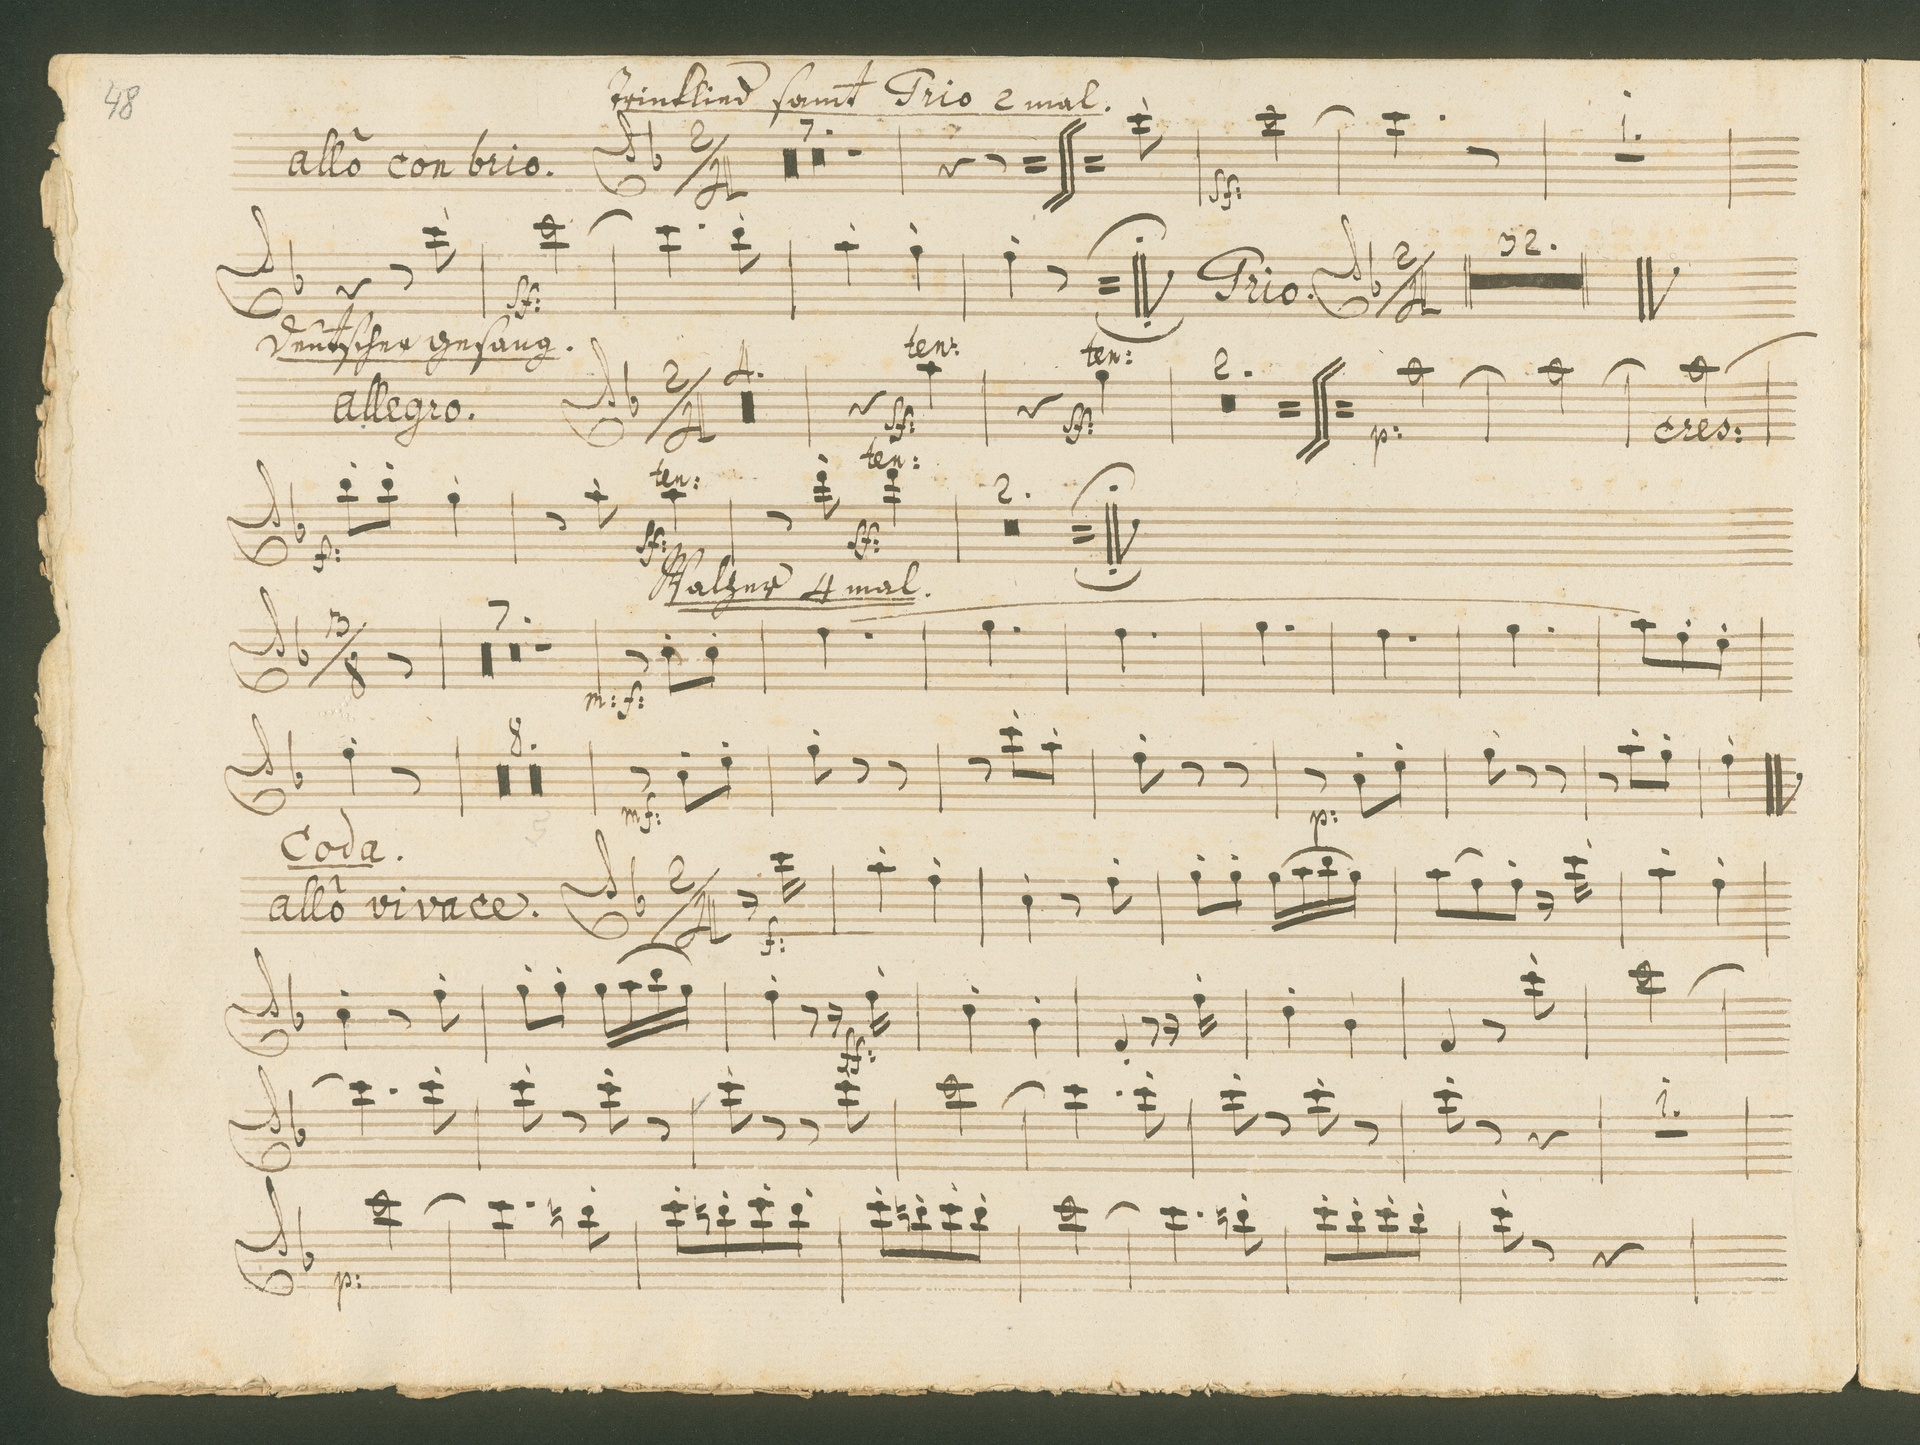 48
Trinklied samt Trio 2 mal.
allo con brio. 2/4 7. 1.
sf:
sf: Trio. 2/4 32.
Deutscher gesang.
allegro. 2/4 4. ten: ten: 2.
sf: sf: p: cres:
ten: ten: 2.
f: sf: sf:
Walzer 4 mal.
3/8 7.
m: f:
8.
mf: p:
Coda.
allo vivace. 2/4
f:
sf:
1.
p: